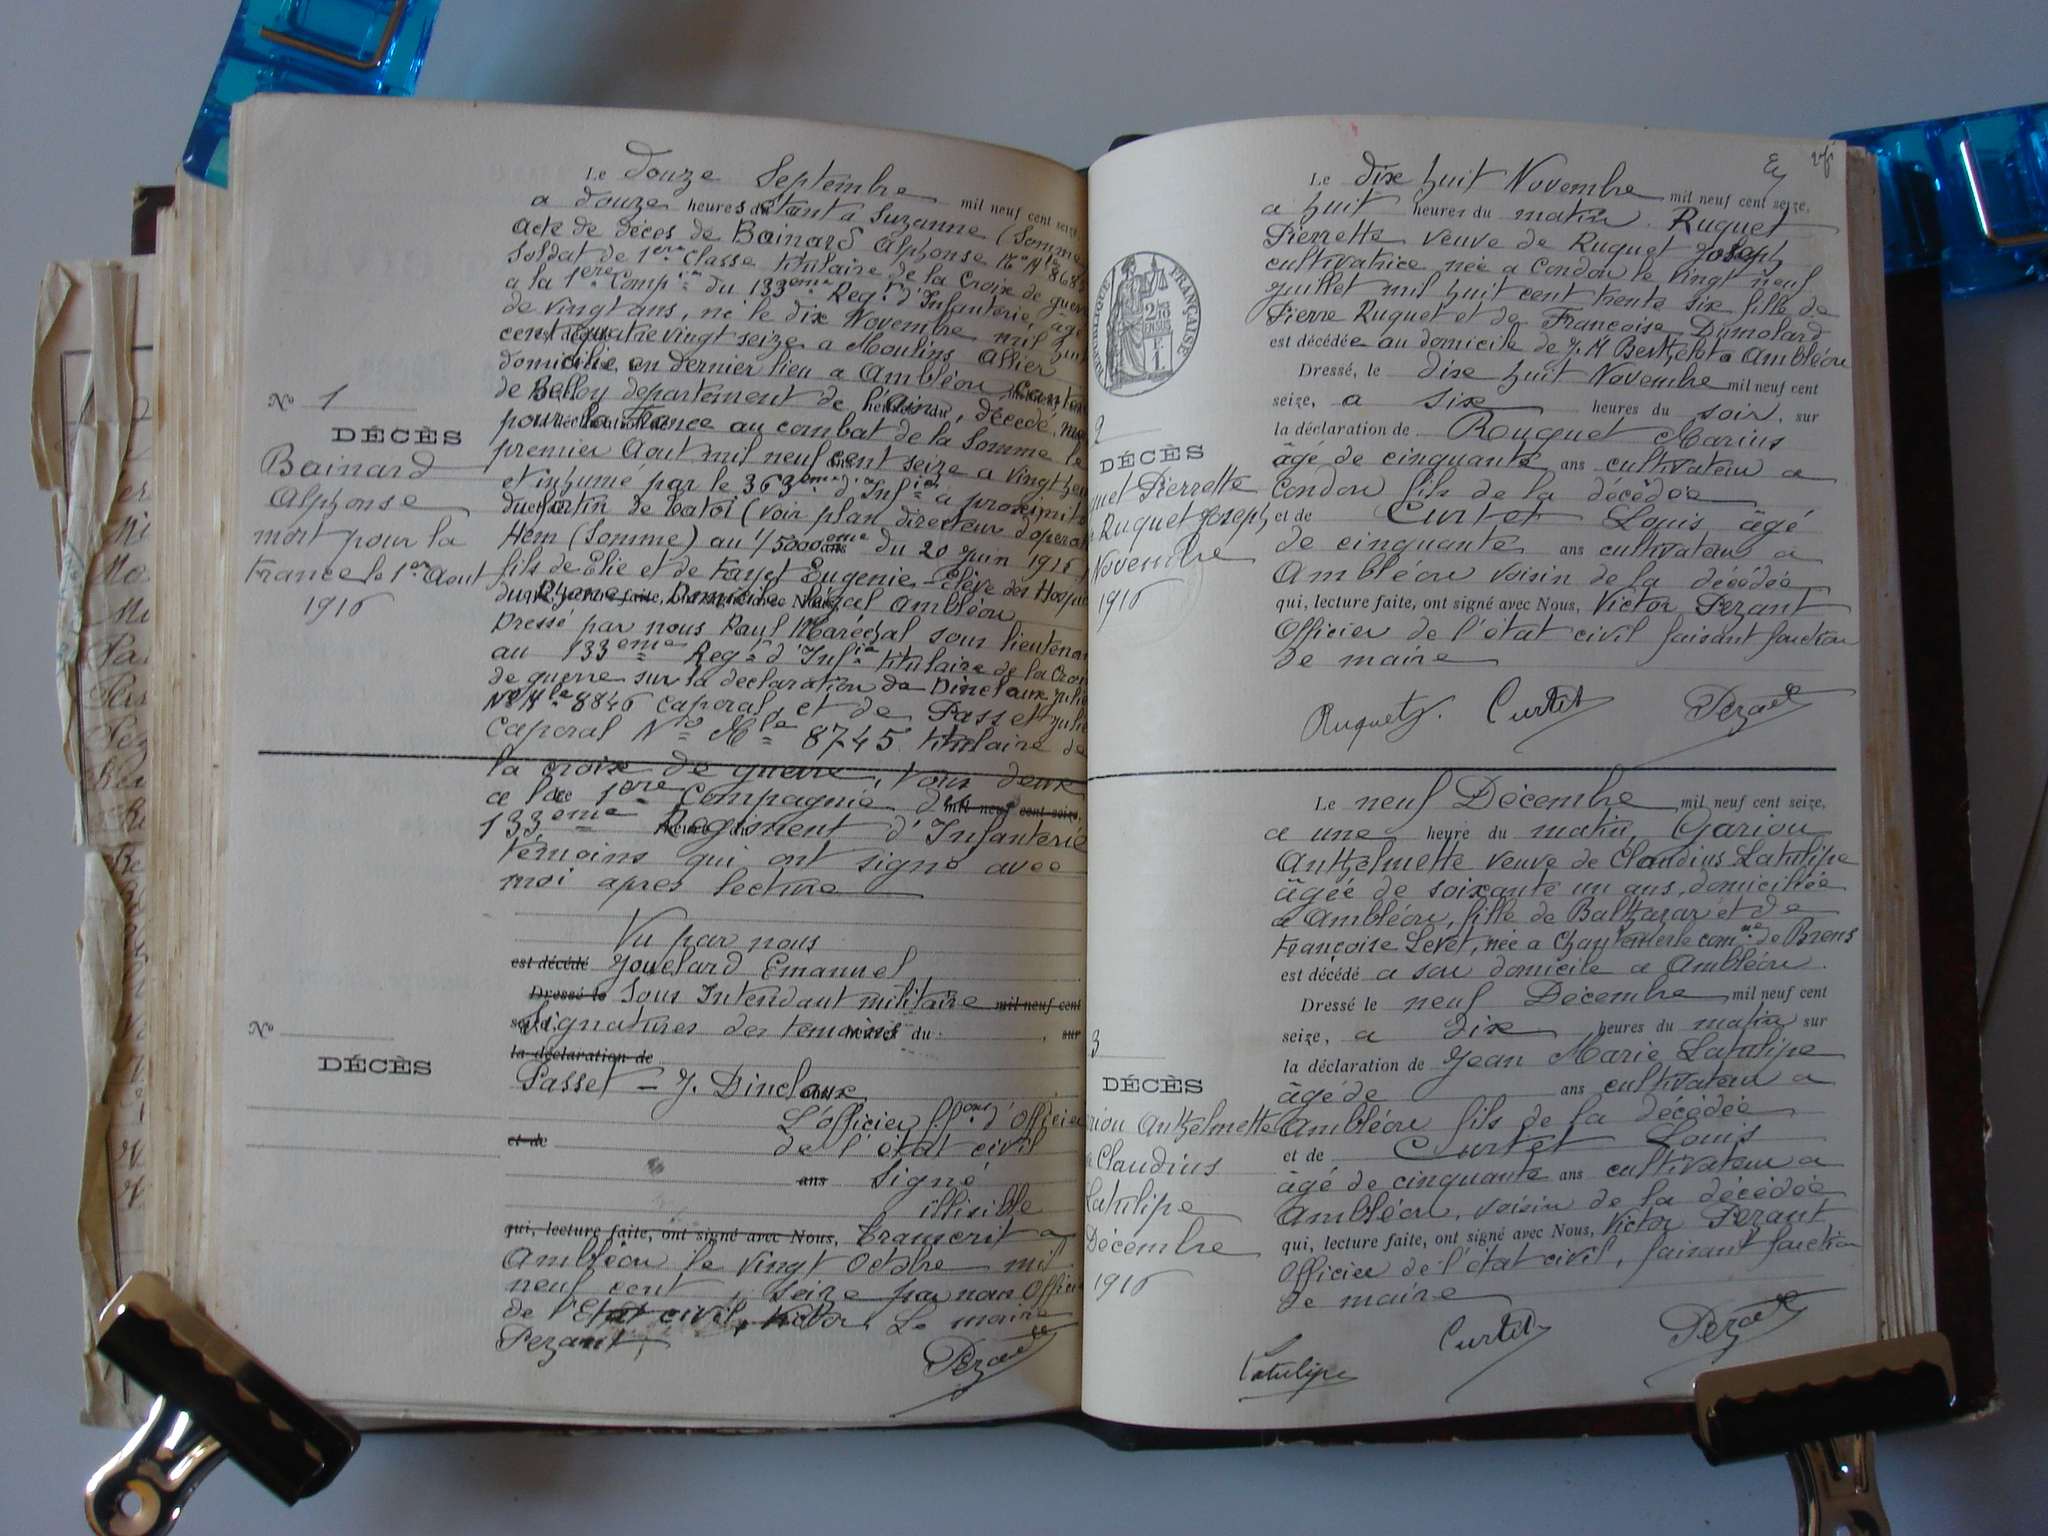 Le douze Septembre mil neuf cent seize,
a douze heures du étant a Suzanne (Somme
Acte de décès de Bainard Alphonse No Mle 868
Soldat de 1ère Classe titulaire de la Croix de guerre
a la 1ère Compie du 133eme Regt d'Infanterie, agé
de vingt ans, né le dix Novembre mil huit
cent quatre vingt seize a Moulins Allier
domicilié en dernier lieu a Ambléon Canton
de Belley departement de l'Ain, décédé, mort
pour la France au combat de la Somme le
premier Aout mil neuf cent seize a vingt heu
et inhumé par le 363eme d'Infie a proximité
du fortin de (voir plan directeur d'opérat
Hem (Somme) au 1/5000eme du 20 Juin 1916
fils de Elie et de Fayet Eugenie Elève des Hospices
du Rhone Domicile légal Ambléon
Dressé par nous Paul Maréchal sous lieutenan
au 133eme Regt d'Infie titulaire de la Croix
de guerre sur la declaration de Dinclaux Julie
No Mle 8846 Caporal, et de Passet Julie
Caporal No Mle 8745 titulaire de
la croix de guerre, tous deux
a la 1ère Compagnie du mil neuf cent seize,
133eme Regiment d'Infanterie
témoins qui ont signé avec
moi apres lecture
Vu par nous
est décédé Jouelard Emanuel
Dressé le Sous Intendant militaire mil neuf cent
seize, Signatures des temoins heures du sur
la déclaration de
Passet - J. Dinclaux
L'officier f.fons d'Officier
et de de l'état civil
ans Signé
illisible
qui, lecture faite, ont signé avec Nous, Transcrit a
Ambléon le vingt Octobre mil
neuf cent seize par nous Officie
de l'Etat civil, Victor Le maire
Pezant
Pezant
No 1
DÉCÈS
Bainard
Alphonse
mort pour la
France le 1er Aout
1916
No
DÉCÈS
Le dix huit Novembre mil neuf cent seize,
a huit heures du matin Ruquet
Pierrette veuve de Ruquet Joseph
cultivatrice née a Condon le vingt neuf
Juillet mil huit cent trente six fille de
Pierre Ruquet et de Françoise Dumolard
est décédée au domicile de J. M Berthelot a Ambléon
Dressé, le dix huit Novembre mil neuf cent
seize, a six heures du soir, sur
la déclaration de Rouquet Marius
âgé de cinquante ans cultivateur a
Condon fils de la décédée
et de Curtet Louis âgé
de cinquante ans cultivateur a
Ambléon voisin de la décédée
qui, lecture faite, ont signé avec Nous, Victor Pezant
Officier de l'état civil faisant fonction
de maire
Ruquet Curtet Pezant
RÉPUBLIQUE FRANÇAISE
2/10
EN SUS
2
DÉCÈS
quet Pierrette
Ruquet Joseph
Novembre
1916
Le neuf Décembre mil neuf cent seize,
a une heure du matin, Gariou
Anthelmette veuve de Claudius Latulipe
âgée de soixante un ans, domiciliée
a Ambléon, fille de Balthazar et de
Françoise Levet, née a Chantemerle comne de Brens
est décédé a son domicile a Ambléon.
Dressé le neuf Décembre mil neuf cent
seize, a dix heures du matin sur
la déclaration de Jean Marie Latulipe
âgé de ans cultivateur a
Ambléon fils de la décédée
et de Curtet Louis
âgé de cinquante ans cultivateur a
Ambléon, voisin de la décédée
qui, lecture faite, ont signé avec Nous, Victor Pezant
Officier de l'état civil, faisant fonction
de maire
Latulipe Curtet Pezant
3
DÉCÈS
riou Anthelmette
Claudius
Latulipe
Décembre
1916